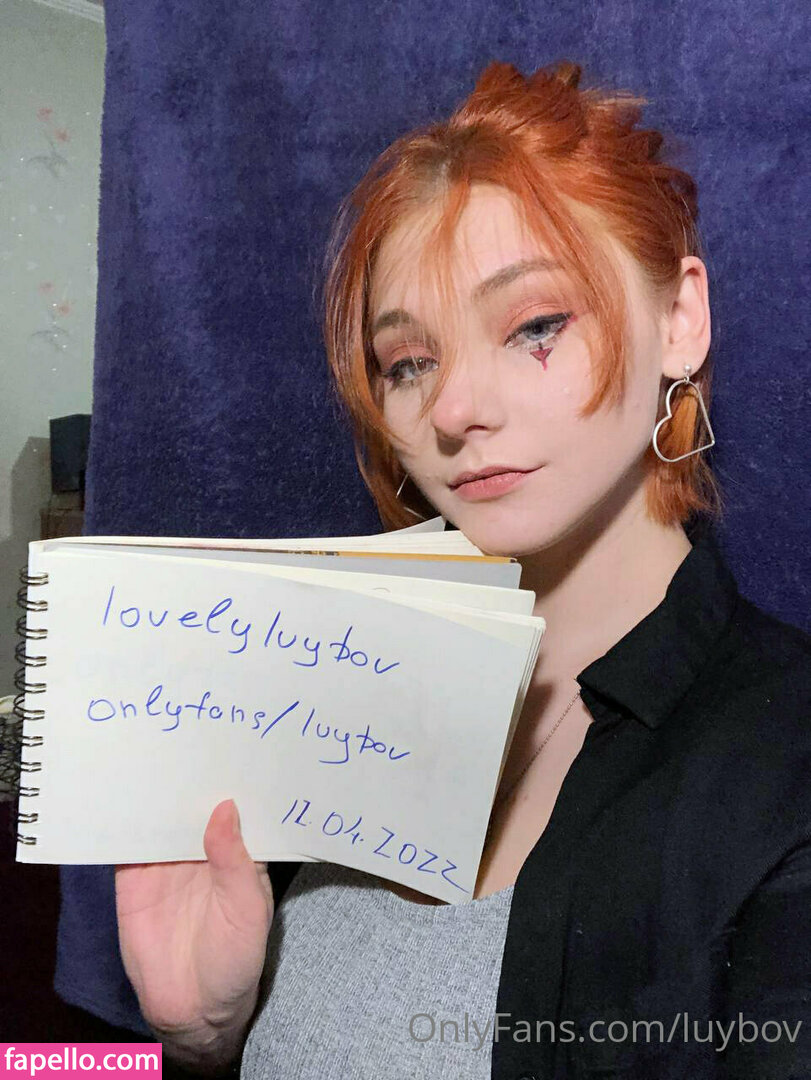 lovelyluybov
onlyfans/luybov
12.04.2022
OnlyFans.com/luybov
fapello.com